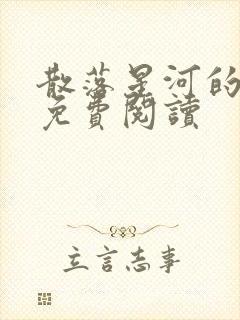 散落星河的
免費閱讀
立言志事